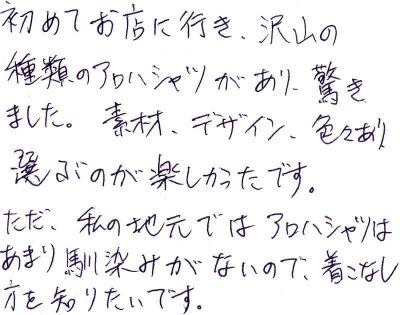 初めてお店に行き、沢山の
種類のアロハシャツがあり、驚き
ました。素材、デザイン、色々あり
選ぶのが楽しかったです。
ただ、私の地元ではアロハシャツは
あまり馴染みがないので、着こなし
方を知りたいです。